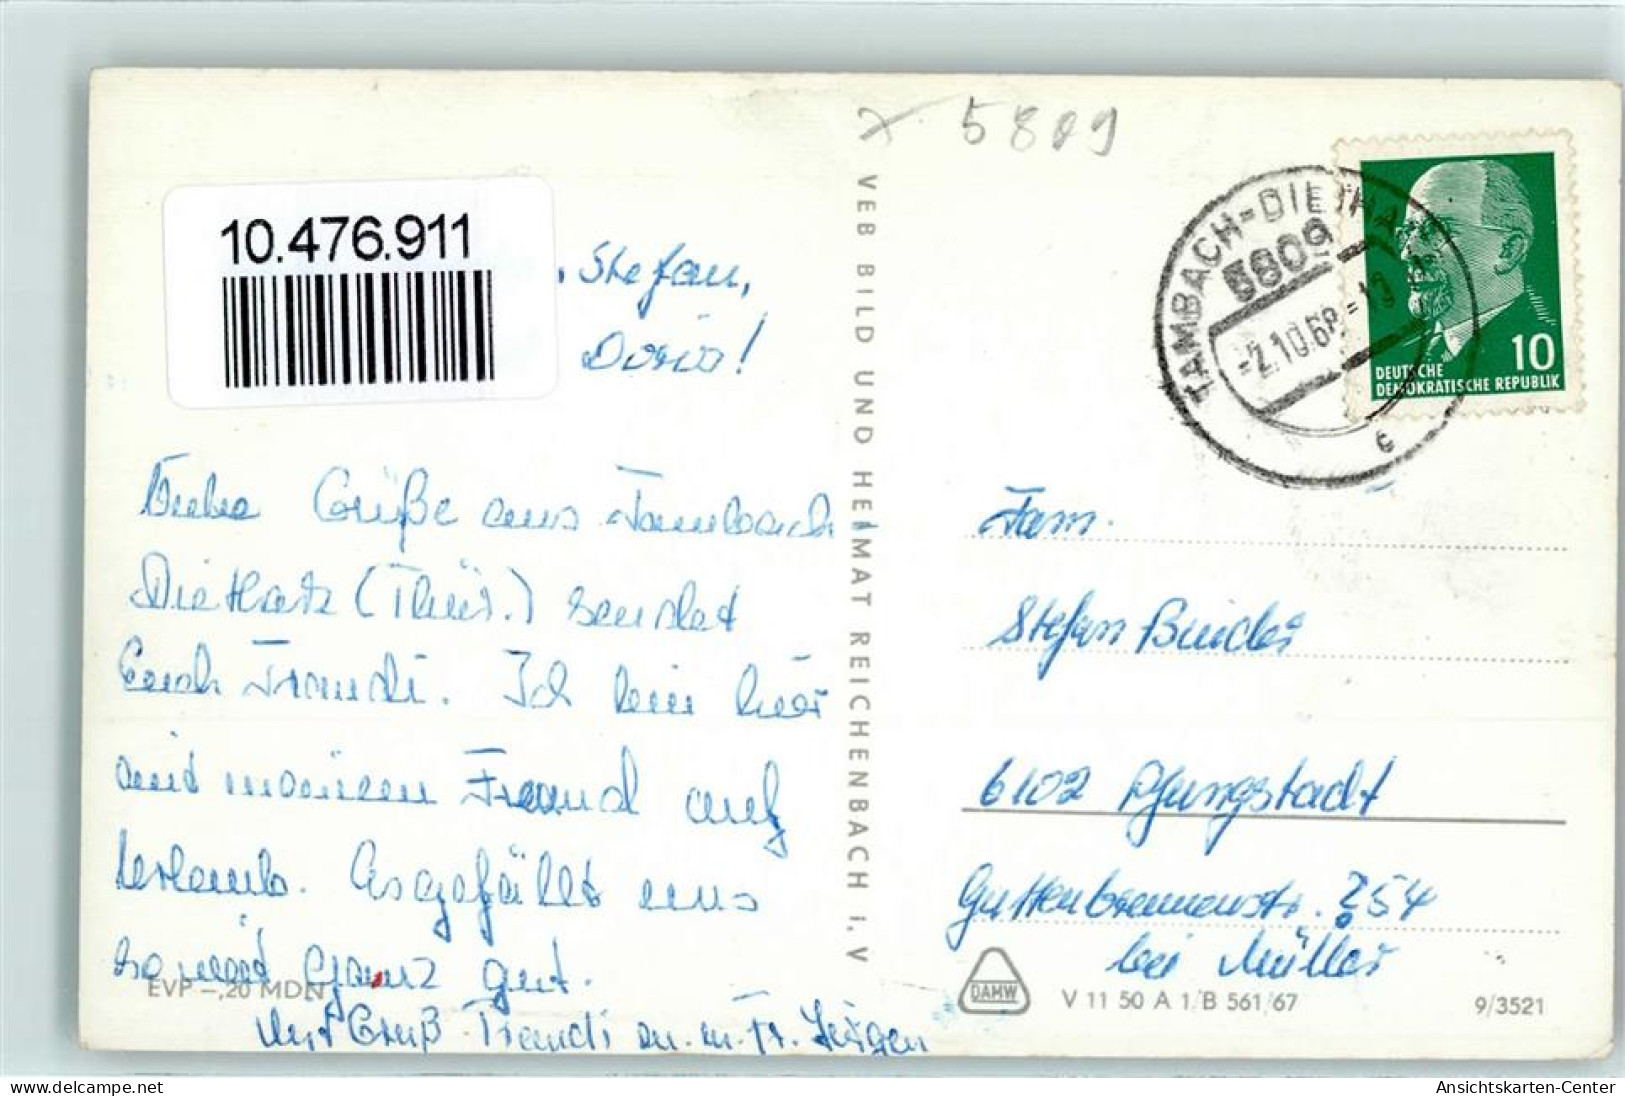 5809
10.476.911
Stefan,
Doris!
Liebe Grüße aus Tambach
Dietharz (Thür.) sendet
Euch Traudi. Ich bin hier
mit meinem Freund auf
Urlaub. Es gefällt uns
soweit ganz gut.
Mit Gruß Traudi u. m. Fr. Jürgen
EVP -,20 MDN
VEB BILD UND HEIMAT REICHENBACH I. V
TAMBACH-DIETHARZ
5809
-2.10.68-10
c
10
DEUTSCHE
DEMOKRATISCHE REPUBLIK
Fam.
Stefan Binder
6102 Pfungstadt
254
bei Müller
DAMW
V 11 50 A 1/B 561/67
9/3521
www.delcampe.net
Ansichtskarten-Center